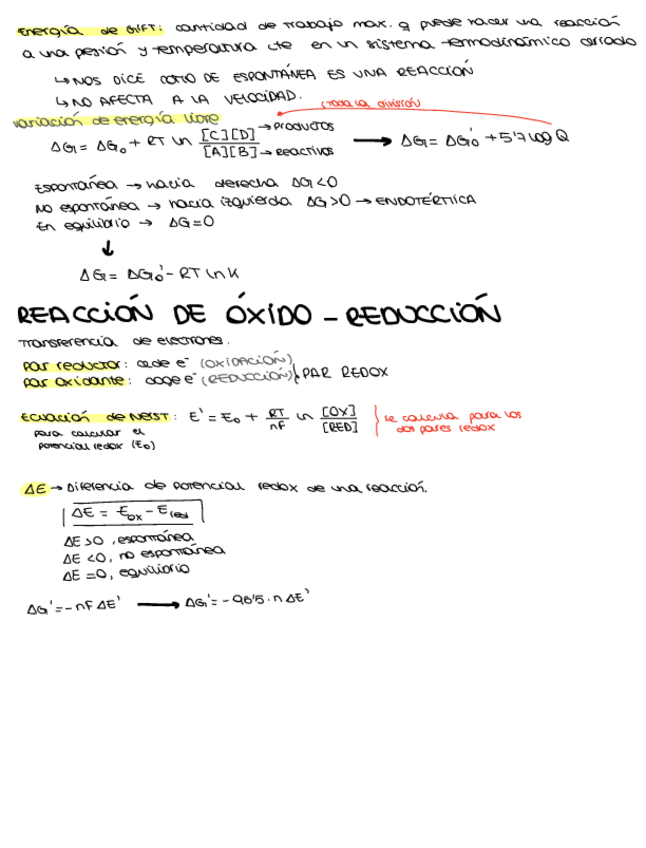 Energía de GIFT: cantidad de trabajo max. q puede hacer una reacción
a una presión y temperatura cte en un sistema termodinámico cerrado
↳ NOS DICE COMO DE ESPONTÁNEA ES UNA REACCIÓN
↳ NO AFECTA A LA VELOCIDAD.
(toda la división
variación de energía libre
ΔG = ΔG₀ + RT ln [C][D] → Productos / [A][B] → Reactivos → ΔG = ΔG₀' + 5'7 log Q
Espontánea → hacia derecha ΔG<0
No espontánea → hacia izquierda ΔG>0 → ENDOTÉRMICA
En equilibrio → ΔG=0
↓
ΔG = ΔG₀' - RT ln K
REACCIÓN DE ÓXIDO - REDUCCIÓN
Transferencia de electrones.
Par reductor: cede e⁻ (OXIDACIÓN)
Par oxidante: coge e⁻ (REDUCCIÓN) } PAR REDOX
Ecuación de NERST: E' = E₀ + RT/nF ln [OX]/[RED] } se calcula para los
dos pares redox
para calcular el
potencial redox (E₀)
ΔE → Diferencia de potencial redox de una reacción.
ΔE = Eox - Ered
ΔE >0, espontánea
ΔE <0, no espontánea
ΔE =0, equilibrio
ΔG' = - nF ΔE' → ΔG' = - 96'5 · n ΔE'